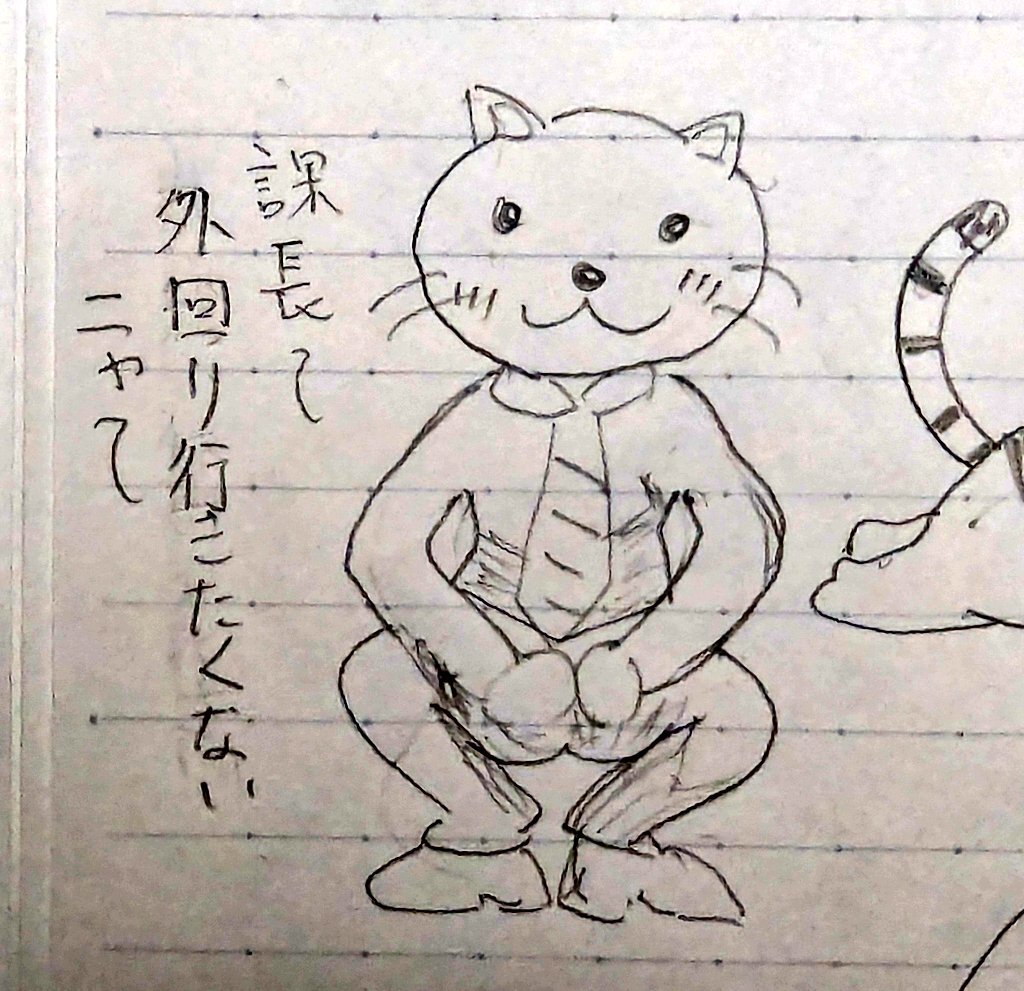 課長〜
外回り行きたくない
ニャ〜